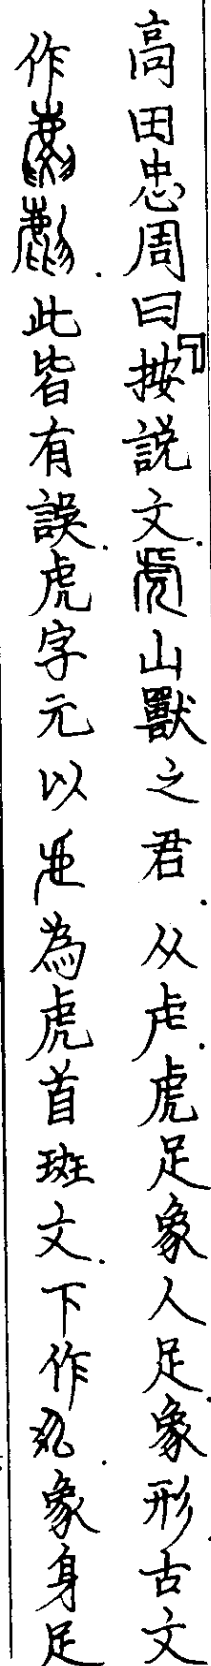 高田忠周曰「按說文.虎山獸之君.从虍.虎足象人足.象形古文
作.此皆有誤.虎字元以虍為虎首斑文.下作象身足